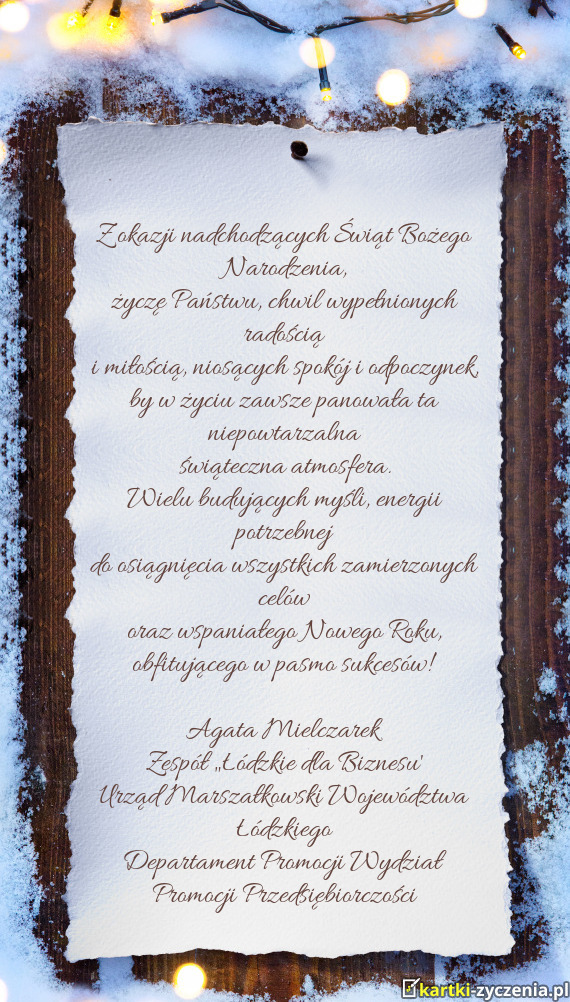 Z okazji nadchodzących Świąt Bożego
Narodzenia,
życzę Państwu, chwil wypełnionych
radością
i miłością, niosących spokój i odpoczynek,
by w życiu zawsze panowała ta
niepowtarzalna
świąteczna atmosfera.
Wielu budujących myśli, energii
potrzebnej
do osiągnięcia wszystkich zamierzonych
celów
oraz wspaniałego Nowego Roku,
obfitującego w pasmo sukcesów!
Agata Mielczarek
Zespół „Łódzkie dla Biznesu'
Urząd Marszałkowski Województwa
Łódzkiego
Departament Promocji Wydział
Promocji Przedsiębiorczości
kartki-zyczenia.pl